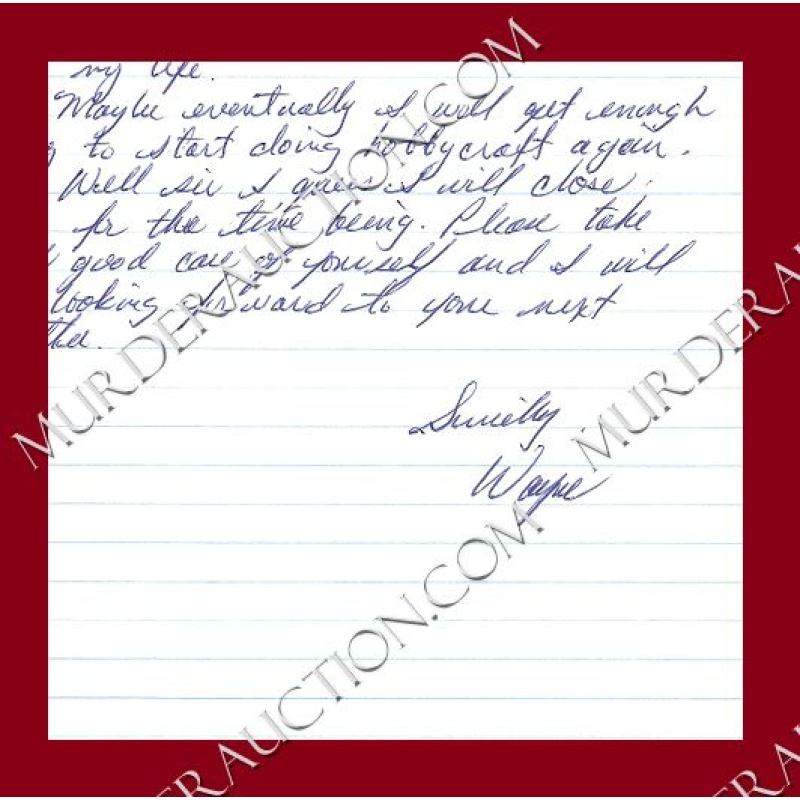 my life.
Maybe eventually I will get enough
to start doing hobbycraft again.
Well sir I guess I will close
for the time being. Please take
good care of yourself and I will
looking forward to your next
Wayne
MURDERAUCTION.COM
MURDERAUCTION.COM